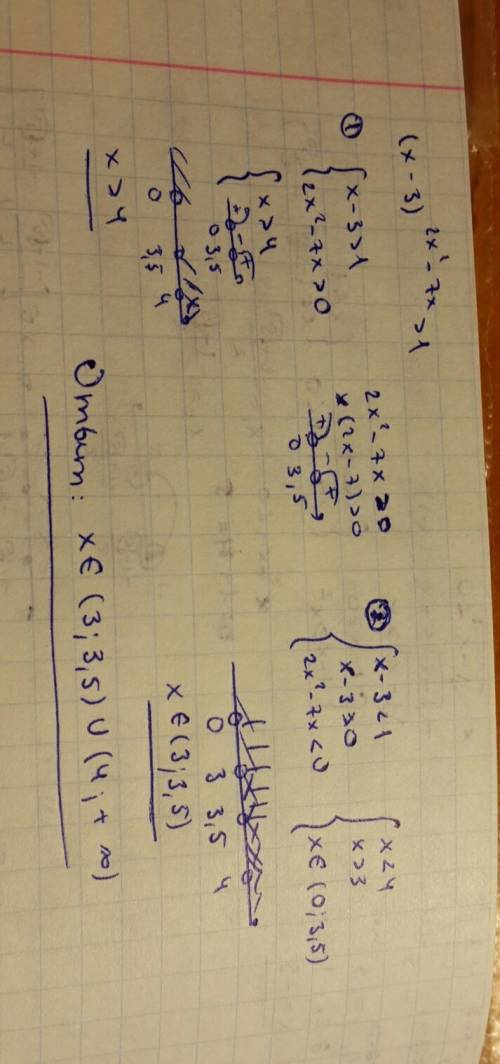 (x - 3)^{2x² - 7x} > 1
① { x - 3 > 1
2x² - 7x > 0
{ x > 4
+ - +
0 3,5
0 3,5 4
x > 4
2x² - 7x > 0
x(2x - 7) > 0
+ - +
0 3,5
② { x - 3 < 1
x - 3 > 0
2x² - 7x < 0
{ x < 4
x > 3
x ∈ (0; 3,5)
0 3 3,5 4
x ∈ (3; 3,5)
Ответ: x ∈ (3; 3,5) ∪ (4; + ∞)